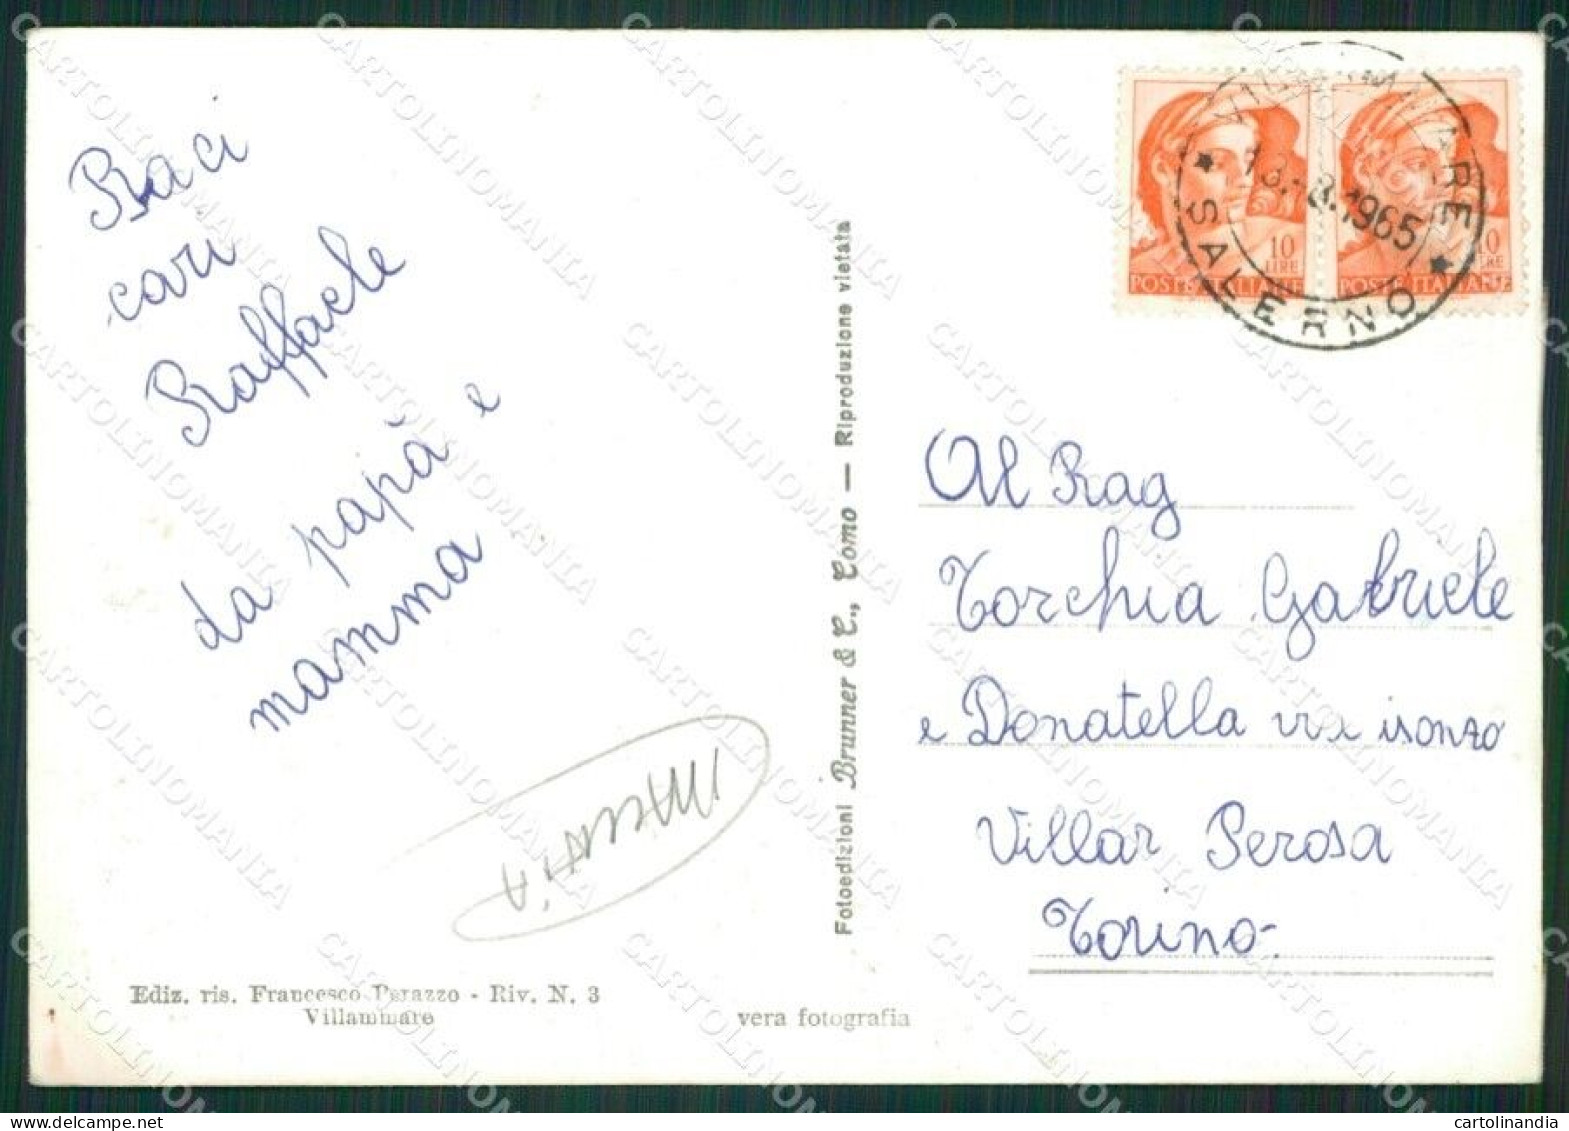 Baci
cari
Raffaele
da papà e
mamma
Ediz. ris. Francesco Perazzo - Riv. N. 3
Villammare
vera fotografia
Fotoedizioni Brunner & C., Como — Riproduzione vietata
10
LIRE
POSTE ITALIANE
10
LIRE
POSTE ITALIANE
VILLAMMARE
1965
* SALERNO *
Al Rag
Torchia Gabriele
e Donatella via isonzo
Villar Perosa
Torino
CARTOLINOMANIA
cartolinandia